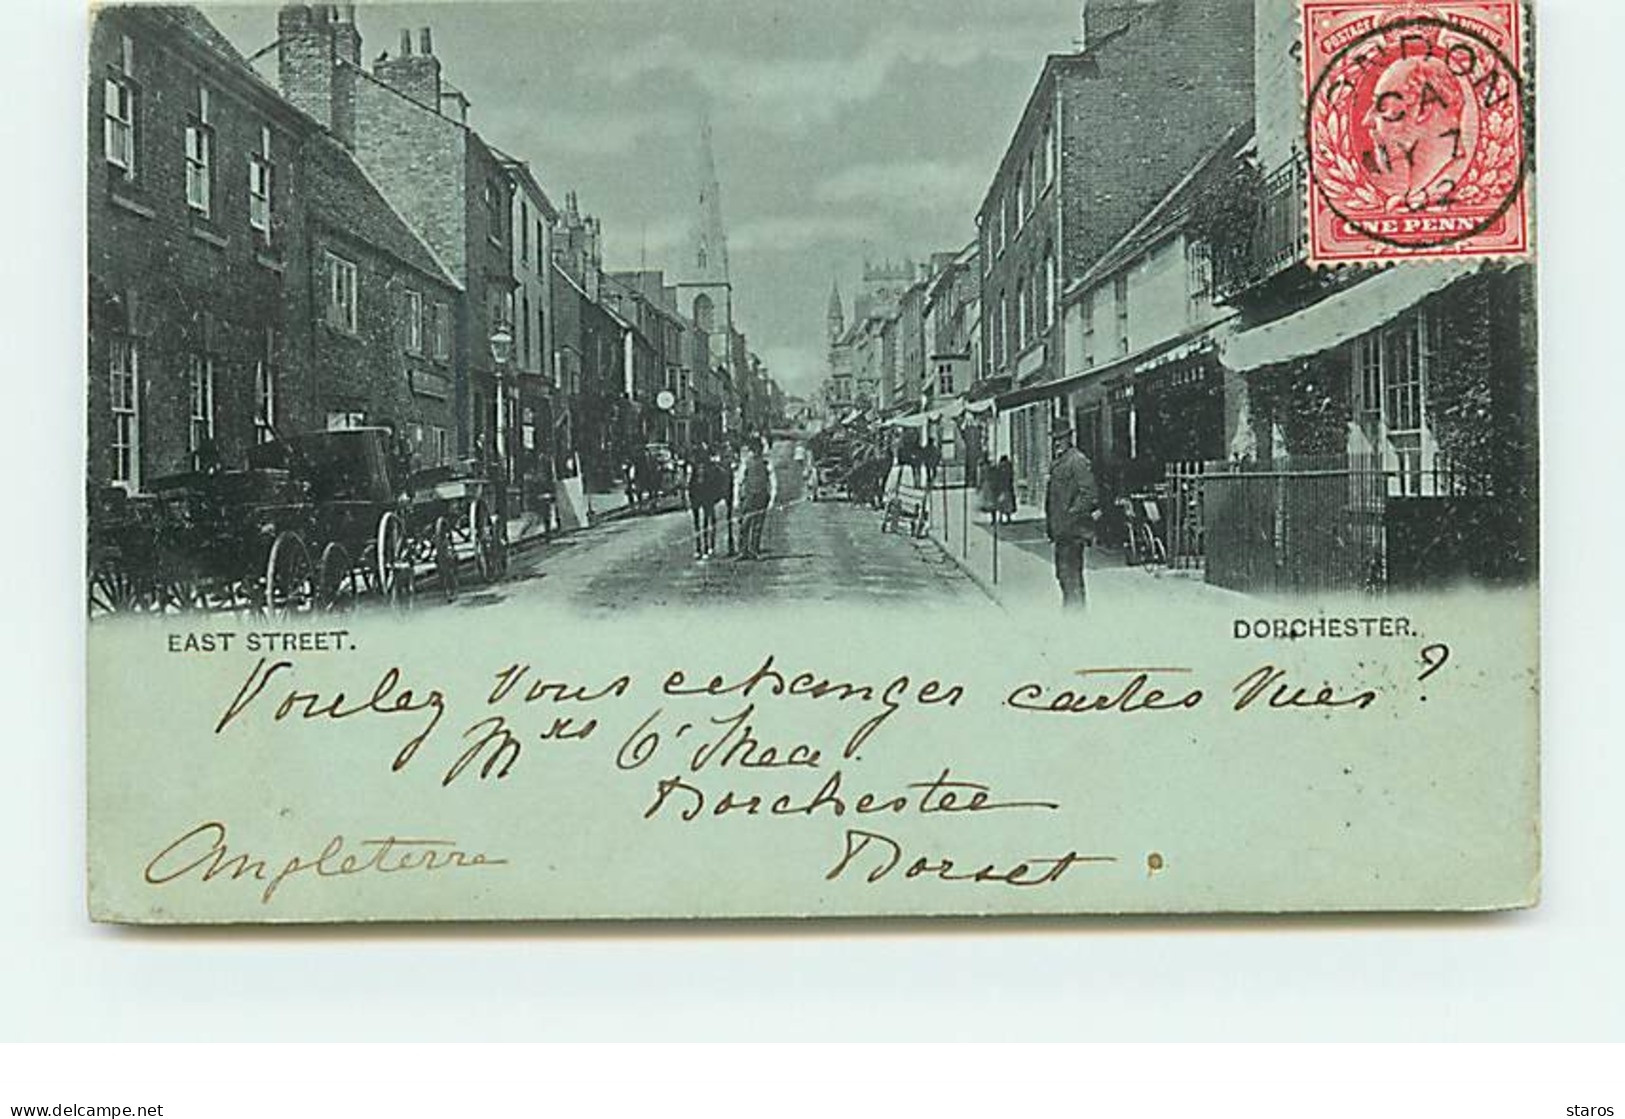 POSTAGE REVENUE
LONDON
CA
MY 7
02
ONE PENNY
EAST STREET.
DORCHESTER.
Voulez Vous echanger cartes Vues ?
Mrs O'Shea.
Dorchester
Dorset.
Angleterre
www.delcampe.net
staros